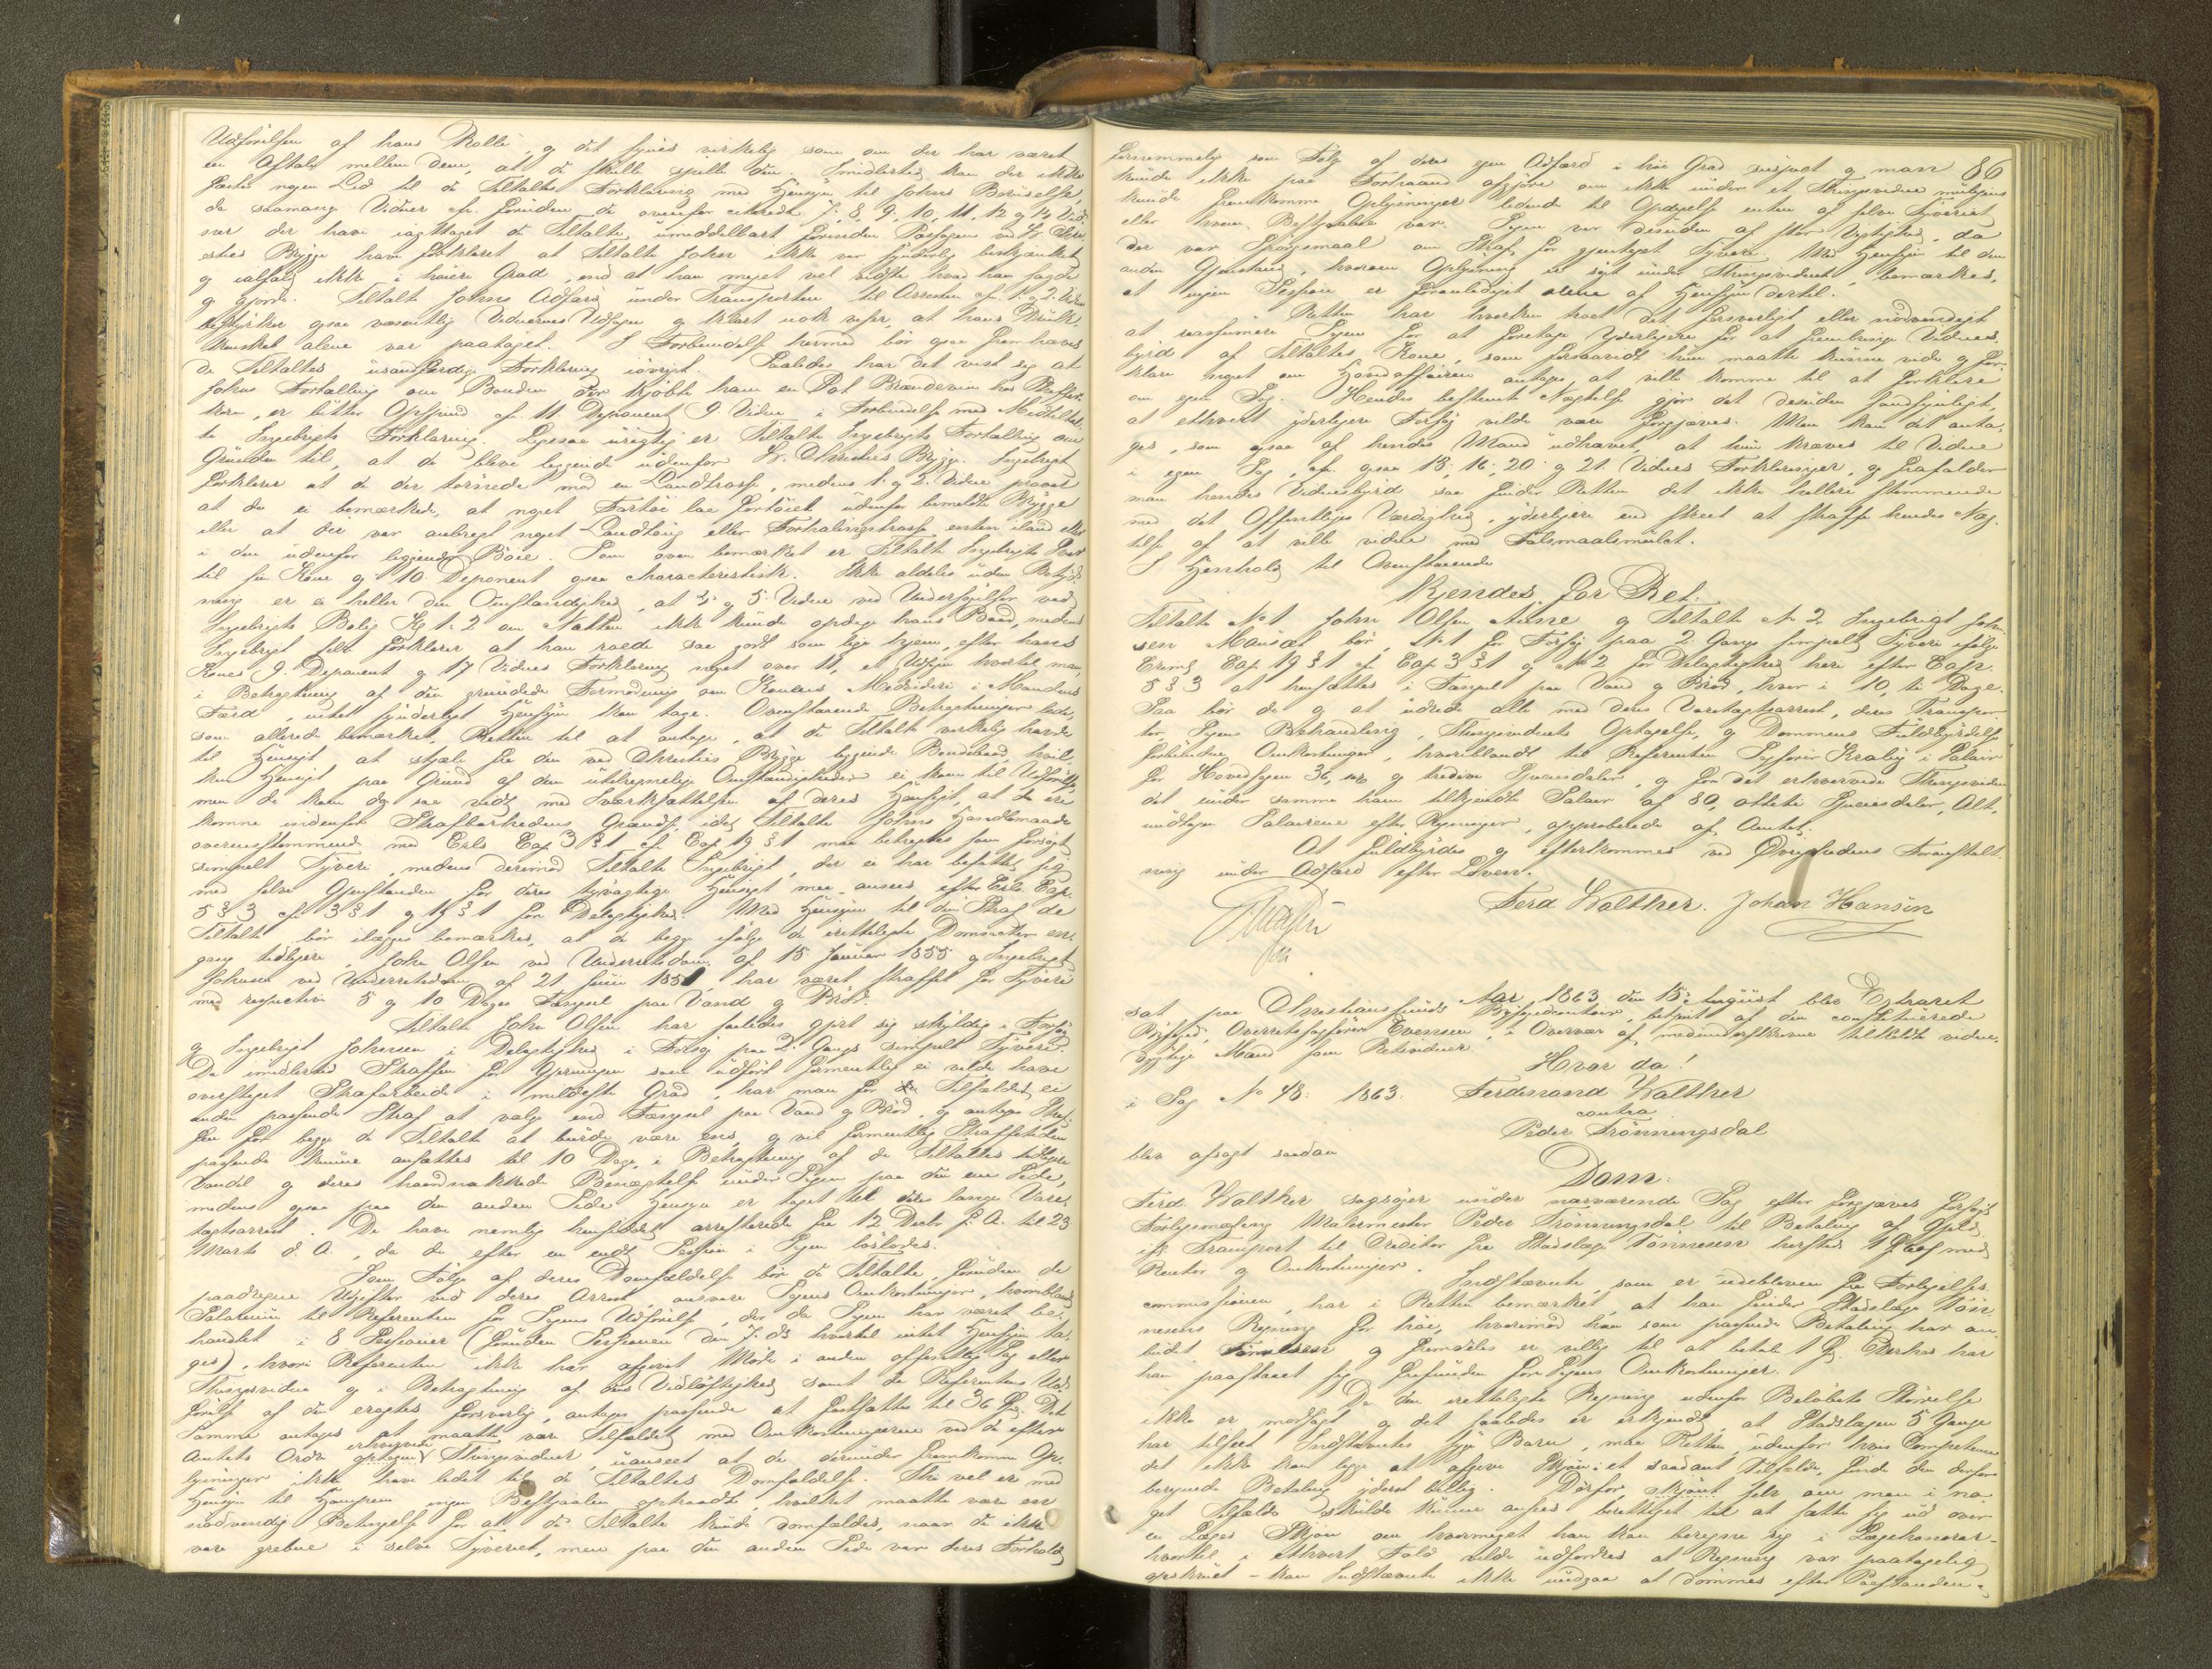 Udførelsen af hans Rolle, og det synes virkelig som om der har været
en Aftale mellem dem, at de skulde spille den. Imidlertid kan der ikke
fæstes nogen Lid til de Tiltaltes Forklaring med Hensyn til Johns Beruselse,
da saamange Vidner cfr. foruden de ovenfor citerede 7. 8. 9. 10. 11. 12 og 13 Vid-
ner der have iagttaget de Tiltalte umiddelbart forinden Passagen ved Hr. Chri-
sties Brygge have forklaret at Tiltalte John ikke var synderlig beskjænket
og ialfald ikke i høiere Grad, end at han meget vel vidste hvad han sagde
og gjorde. Tiltalte Johns Adfærd under Transporten til Arresten cfr. 1. og 2. Vidne
bestyrker ogsaa væsentlig Vidnernes Udsagn og klart nok viser, at hans Drukk-
enskab alene var paataget. I Forbindelse hermed bør ogsaa fremhæves
de Tiltaltes usandfærdige Forklaring iøvrigt. Saaledes har det vist sig at
Johns Fortælling om Bonden der kjøbte ham en Pot Brændeviin hos
er bitter Opspind cfr. 11. Deponent 9 Vidne i Forbindelse med Medtiltal-
te Ingebrigts Forklaring. Ligesaa urigtig er Tiltalte Ingebrigts Fortælling om
Grunden til, at de bleve liggende udenfor Hr. Christies Brygge. Ingebrigt
forklarer at de der tørnede mod en Landtrosse, medens 1. og 2. Vidne
at de ei bemærkede, at noget Fartøi laa fortøiet udenfor bemeldte Brygge
eller at der var anbragt noget Landtoug eller Forhalingstrosse enten iland eller
i den udenfor liggende Bøie. Som oven bemærket er Tiltalte Ingebrigts Svar
til sin Kone og 10 Deponent ogsaa characteristisk. Ikke aldeles uden Betyd-
ning er ei heller den Omstændighed, at 4 og 5 Vidne ved Undersøgelsen ved
Ingebrigts Bolig Kl 1-2 om Natten ikke kunde opdage hans Baad, medens
Ingebrigt selv forklarer at han roede saa godt som lige hjem, efter hans
Kones 9. Deponent og 17 Vidnes Forklaring noget over 11, et Udsagn hvortil man
i Betragtning af den grundede Formodning om Konens Medviden i Mandens
Færd, intet synderligt Hensyn kan tage. Ovenstaaende Betragtninger lede,
som allerede bemærket, Retten til at antage, at de Tiltalte virkelig havde
til Hensigt at stjæle fra den ved Christies Brygge liggende Bondebaad, hvil-
ken Hensigt paa Grund af den utilregnelige Omstændigheder ei kom til Udførelse,
men de kom dog saa vidt med Iværksættelsen af deres Hensigt, at de ere
komne indenfor Strafbarhedens Grændse, idet Tiltalte Johns Handlemaade
overensstemmende med Crls Cap 3 § 1 cfr Cap 19 § 1 maa betragtes som forsøgt
simpelt Tyveri, medens derimod Tiltalte Ingebrigt, der ei har befattet sig
med selve Gjenstanden for deres tyvagtige Hensigt maa ansees efter Crls. Cap.
5 § 3 cfr 3 § 1 og 19 § 1 for Delagtighed. Med Hensyn til den Straf de
Tiltalte bør ilægges bemærkes, at de begge ifølge de irettelagte Domsacter en-
gang tidligere, John Olsen ved Underretsdom af 15 Januar 1855 og Ingebrigt
Johnsen ved Underretsdom af 21 Juni 1851, har været straffet for Tyveri
med respective 5 og 10 Dages Fængsel paa Vand og Brød.
Tiltalte John Olsen har saaledes gjort sig skyldig i Forsøg
og Ingebrigt Johnsen i Delagtighed i Forsøg paa 2. Gangs simpelt Tyveri.
Da imidlertid Straffen for Gjerningen som udført formentlig ei vilde have
oversteget Strafarbeide i mildeste Grad, har man for dette Tilfælde ei
anden passende Straf at vælge end Fængsel paa Vand og Brød, og antages Straf-
fen for begge de Tiltalte at burde være ens, og vil formentlig Straffetiden
passende kunne ansættes til 10 Dage, i Betragtning af de Tiltaltes tidligere
Vandel og deres haardnakkede Benægtelse under Sagen paa den ene Side,
medens ogsaa paa den anden Side Hensyn er taget til deres lange Vare-
tægtsarrest. De have nemlig hensiddet arresterede fra 12 Decbr f. A. til 23
Marts d. A., da de efter en endt Session i Sagen løslodes.
Som Følge af deres Domfældelse bør de Tiltalte, foruden de
paadragne Udgifter ved deres Arrest, ansvare Sagens Omkostninger, hvoriblandt
Salarium til Referenten for Sagens Udførelse, der da Sagen har været be-
handlet i 8 Sessioner (foruden Sessionen den 7. ds hvortil intet Hensyn ta-
ges), hvori Referenten ikke har afgivet Møde i anden offentlig Sag eller
Thingsvidne og i Betragtning af dens Vidløftighed samt da Referentens Ud-
førelse af den eragtes forsvarlig, antages passende at fastsættes til 36 Spd. Det
samme antages at maatte være Tilfældet med Omkostningerne ved de efter
Amtets Ordre erhvervede Thingsvidner, uanseet at de derunder fremkomne Op-
lysninger ikke have ledet til de Tiltaltes Domfældelse. Thi vel er med
Hensyn til Hampen ingen Bestjaalen opstaaet, hvilket maatte være en
nødvendig Betingelse for at de Tiltalte kunde domfældes, naar de ikke
vare grebne i selve Tyveriet, men paa den anden Side var deres Forhold
86
fornemmelig som Følge af deres egen Adfærd i høi Grad suspect og man
kunde ikke paa Forhaand afgjøre om ikke under et Thingsvidne muligens
kunde fremkomme Oplysninger ledende til Opdagelse enten af selve Tyveriet
eller hvem Bestjaalne var. Sagen var desuden af stor Vigtighed, da
der var Spørgsmaal om Straf for gjentaget Tyveri. Med Hensyn til den
anden Gjenstand, hvorom Oplysning er søgt under Thingsvidnet, bemærkes,
at ingen Session er foranlediget alene af Hensyn dertil.
Retten har hverken troet det forsvarligt eller nødvendigt
at reassumere Sagen for at foretage Yderligere for at frembringe Vidnes-
byrd af Tiltaltes Kone, som forsaavidt hun maatte kunne vide og for-
klare noget om Hovedaffairen antages at ville komme til at forklare
om egen Sag. Hendes bestemte Nægtelse gjør det desuden sandsynligt,
at ethvert yderligere Forsøg vilde være forgjæves. Man kan det anta-
ges, som ogsaa af hendes Mand udhævet, at hun kræves til Vidne
i egen Sag, cfr. ogsaa 15. 16. 20. og 21. Vidnes Forklaringer, og frafalder
man hendes Vidnesbyrd saa finder Retten det ikke hellere stemmende
med det Offentliges Værdighed, yderligere end skeet at straffe hendes Næg-
telse af at ville vidne med Falsmaalsmulct.
I Henhold til Ovenstaaende
Kjendes for Ret:
Tiltalte No 1 John Olsen og Tiltalte No 2. Ingebrigt John-
sen bør, No 1 for Forsøg paa 2 Gangs simpelt Tyveri ifølge
Criml. Cap 19 § 1 cfr Cap 3 § 1 og No 2 for Delagtighed heri efter Cap.
5 § 3 at hensættes i Fængsel paa Vand og Brød, hver i 10, ti Dage.
Saa bør de og at udrede alle med deres Varetægtsarrest, deres Transpor-
ter, Sagens Behandling, Thingsvidnets Optagelse, og Dommens Fuldbyrdelse
forbundne Omkostninger, hvoriblandt til Referenten Sagfører Krabig i Salair
for Hovedsagen 36, sex og tredive Speciedaler, og for det erhvervede Thingsvidne
det under samme ham tilkjendte Salair af 80, otteti Speciedaler, Alt,
undtagen Salairene efter Regninger, approberede af Amtet.
At fuldbyrdes og efterkommes ved Øvrighedens Foranstalt-
ning under Adfærd efter Loven.
Ferd Walther. Johan Hansen
Aar 1863 den 15. August blev Extraret
sat paa Christianssunds Byfogedcontoir, betjent af den constituerede
Byfoged, Overretssagfører Evensen, i Overvær af medunderskrevne tilkaldte vidne-
dygtige Mænd som Retsvidner
Hvor da!
i Sag No 48. 1863. Ferdinand Walther
contra
Peder Trønningsdal
blev afsagt saadan
Dom:
Ferd. Walther sagsøger under nærværende Sag efter forgjæves forsøgt
Forligsmægling Malermester Peder Trønningsdal til Betaling af Gjæld
ifl. Transport til Creditor fra Stadslæge Tønnesen hersteds med
Renter og Omkostninger. Indstævnte, som er udebleven fra Forligelses-
commissionen, har i Retten bemærket, at han finder Stadslæge Tøn-
nesens Regning for høi, hvorimod han som passende Betaling har an-
budt Tønnesen og fremdeles er villig til at betale 1 Spd. Derhos har
han paastaaet sig frifunden for Sagens Omkostninger.
Da den irettelagte Regning udenfor Beløbets Størrelse
ikke er modsagt og det saaledes er erkjendt, at Stadslægen 5 Gange
har tilseet Indstævntes syge Barn, maa Retten, udenfor hvis Competence
det ikke kan ligge at afgive Skjøn i et saadant Tilfælde, finde den derfor
beregnede Betaling yderst billig. Dérfor, skjønt selv om man i no-
get Tilfælde skulde kunne ansees berettiget til at sætte sig ud over
en Læges Skjøn om hvormeget han kan beregne sig i Lægehonorar -
hvortil i ethvert Fald vilde udfordres at Regning var paatagelig
opskruet - kan Indstævnte ikke undgaa at dømmes efter Paastanden.